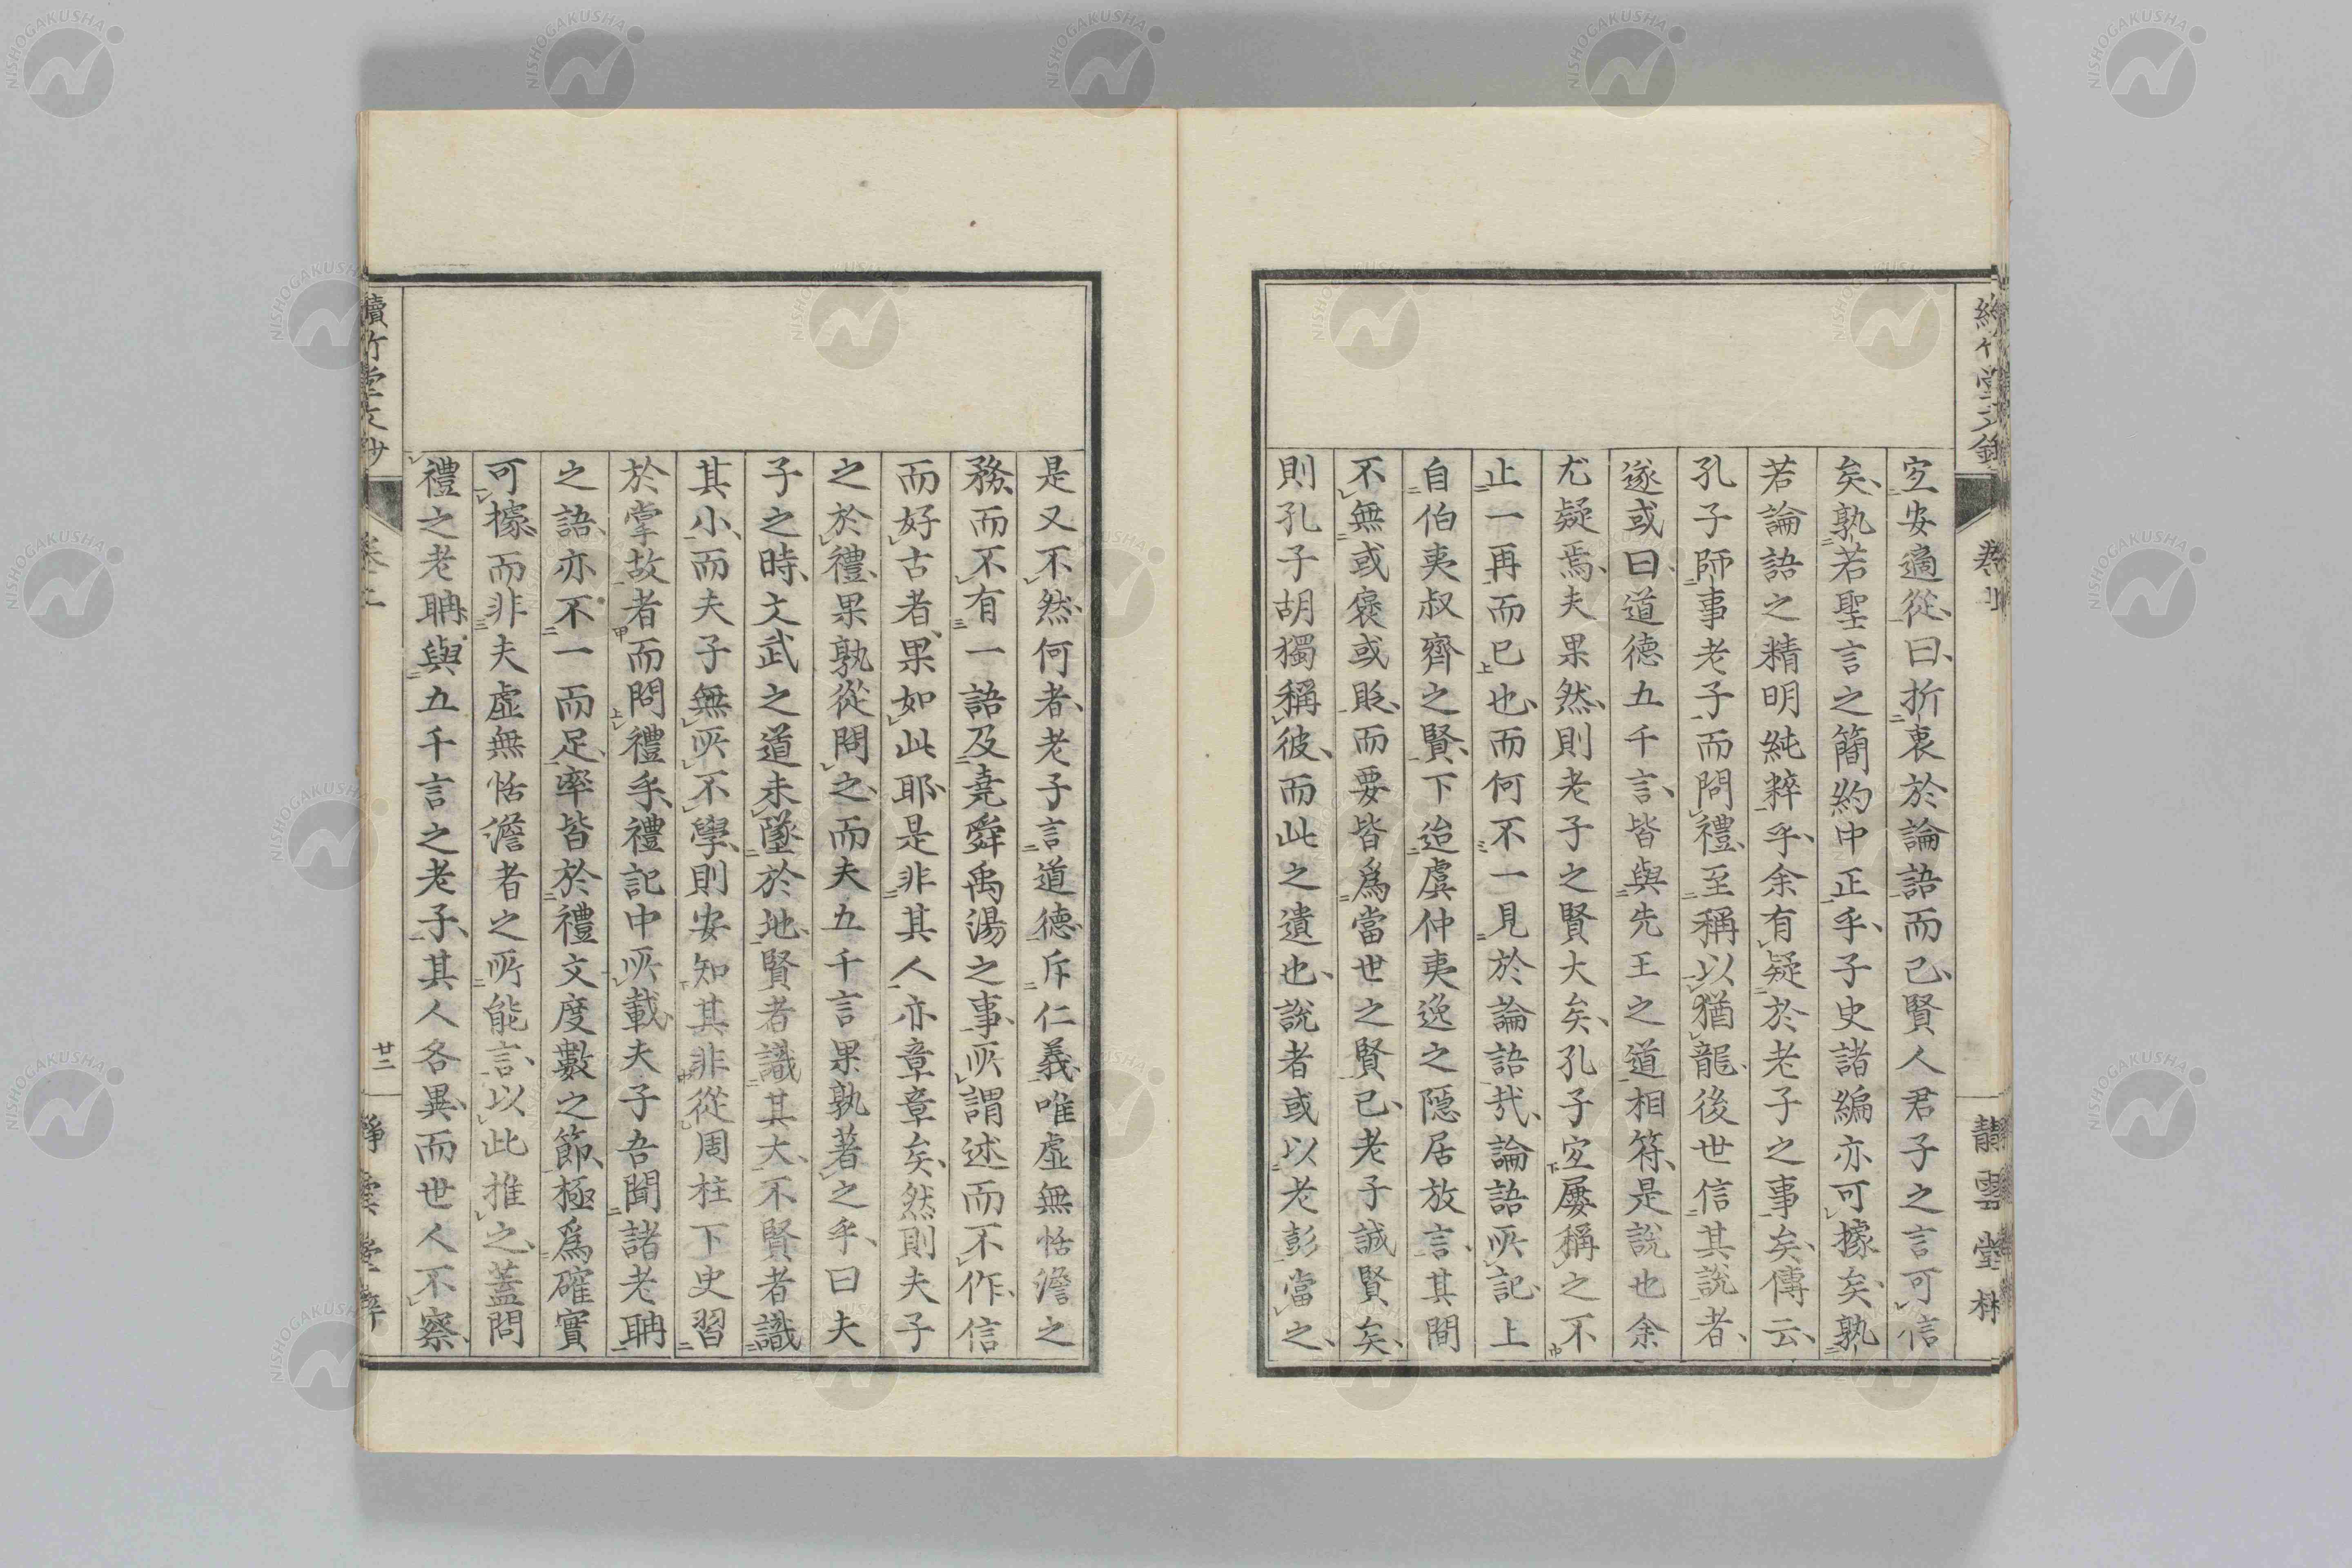 宐安適從、曰、折衷於論語而已、賢人君子之言可信
矣、孰若聖言之簡約中正乎、子史諸編亦可據矣、孰
若論語之精明純粹乎、余有疑於老子之事矣、傳云、
孔子師事老子而問禮、至稱以猶龍、後世信其說者、
遂或曰、道德五千言、皆與先王之道相符、是說也余
尤疑焉、夫果然、則老子之賢大矣、孔子宐屢稱之不
止一再而已也、而何不一見於論語哉、論語所記、上
自伯夷叔齊之賢、下迨虞仲夷逸之隱居放言、其間
不無或襃或貶、而要皆爲當世之賢已、老子誠賢矣、
則孔子胡獨稱彼、而此之遺也、說者或以老彭當之、
是又不然、何者、老子言道德、斥仁義、唯虛無恬澹之
務、而不有一語及堯舜禹湯之事、所謂述而不作、信
而好古者、果如此耶、是非其人亦章章矣、然則夫子
之於禮、果孰從問之、而夫五千言果孰著之乎、曰夫
子之時、文武之道未墜於地、賢者識其大、不賢者識
其小、而夫子無所不學、則安知其非從周柱下史習
於掌故者而問禮乎、禮記中所載、夫子吾聞諸老聃
之語、亦不一而足、率皆於禮文度數之節、極爲確實
可據、而非夫虛無恬澹者之所能言、以此推之、蓋問
禮之老聃、與五千言之老子、其人各異、而世人不察、
續竹堂文抄
廿二
NISHOGAKUSHA